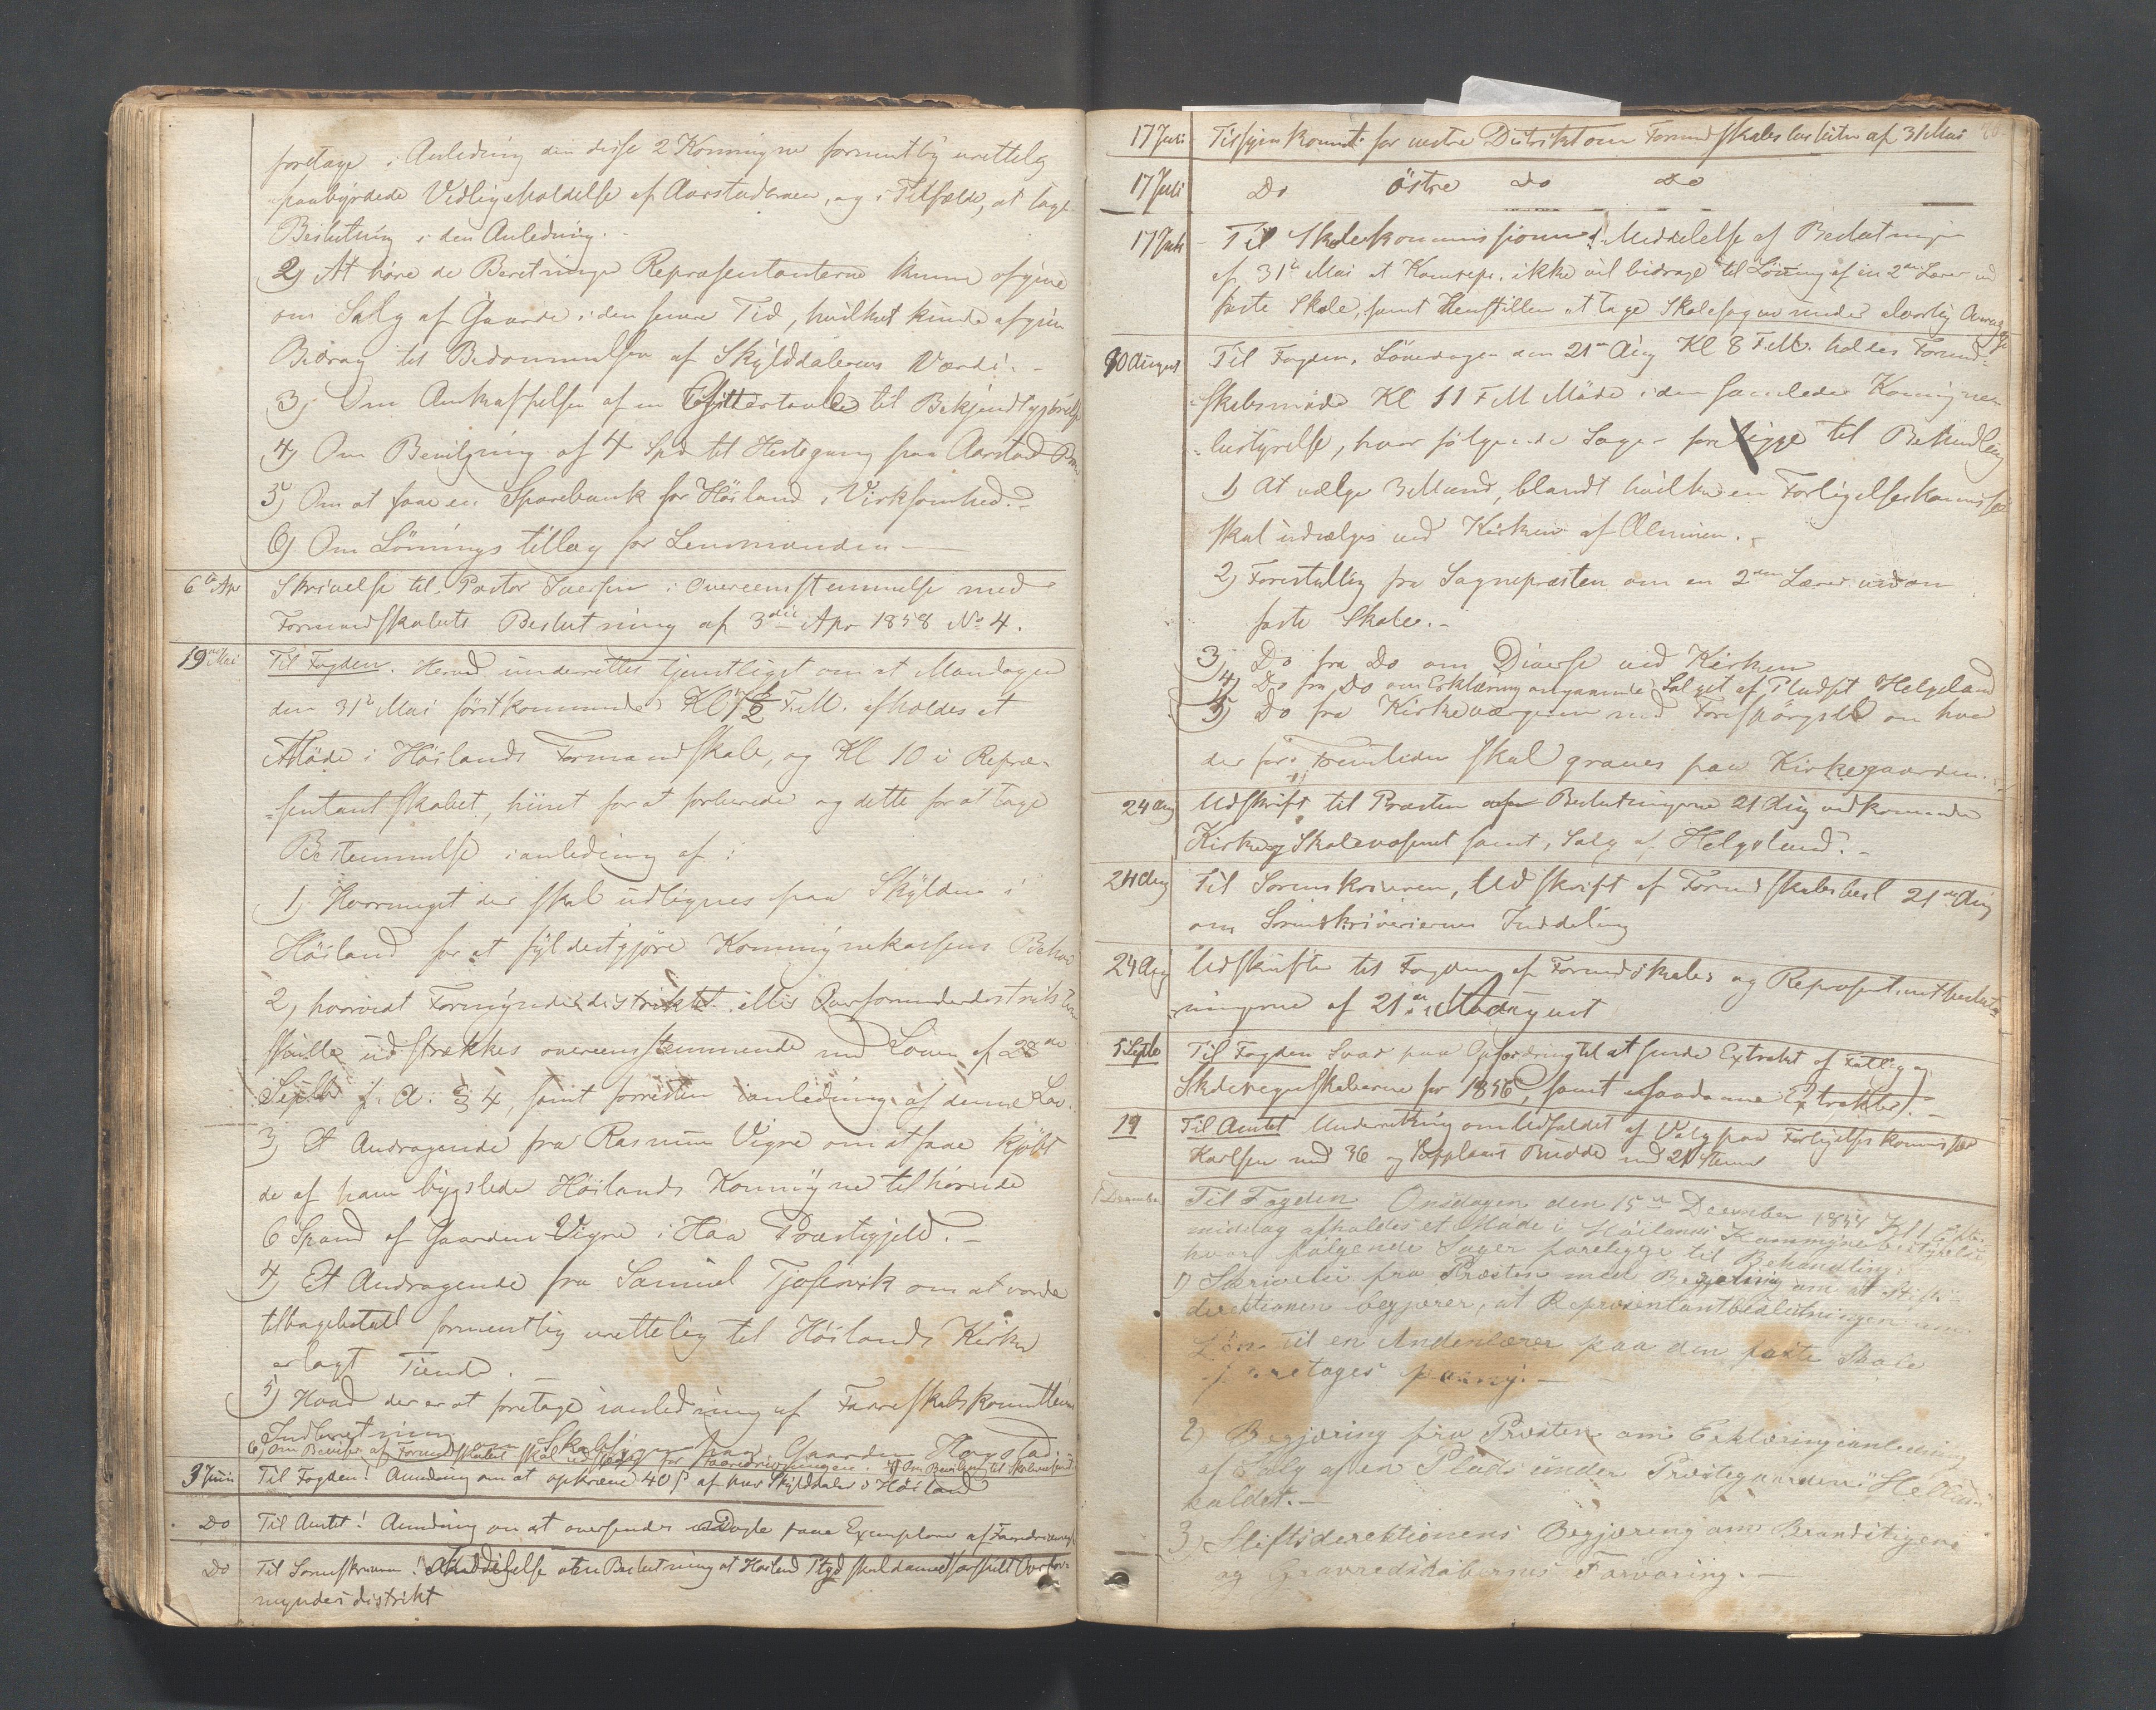 foretage i Anledning den disse 2 Kommuner formentlig urettelig
paabyrdede Vedligeholdelse af Aarstadbroen, og i Tilfælde, at tage
Beslutning i den Anledning.
2) At høre de Beretninger Repræsentanterne kunne afgive
om Salg af Gaarde i den senere Tid, hvilket kunde afgive
Bidrag til Bedømmelsen af Skylddalerens Værdi. -
3) Om Anskaffelsen af en til Bekjendtgjørelse
4) Om Bevilgning af 4 Spd til Hestegang paa Aarstad Bro
5) Om at faae en Sparebank for Höiland i Virksomhed. -
6) Om Lönnings tillæg for Lensmanden -
6te Apr Skrivelse til Pastor Iversen i Overeensstemmelse med
Formandskabets Beslutning af 3die Apr 1858 No 4.
19de Mai Til Fogden. Herved underrettes tjenstligst om at Mandagen
den 31te Mai förstkommende Kl F.M. afholdes et
Möde i Höilands Formandskab, og Kl 10 i Repræ-
sentantskabet, hiint for at forberede og dette for at tage
Bestemmelse ianledning af:
1) Hvormeget der skal udlignes paa Skylden i
Höiland for at fyldestgjöre Kommunekassens Behov
2, hvorvidt Formynderdistriktet ellers Overformynderdistriktet
skulle udstrækkes overeensstemmende med Loven af 28de
Septbr f. A. § 4, samt forresten ianledning af denne Lov.
3) Et Andragende fra Rasmus Vigre om at faae kjöbt
de af ham bygslede Höilands Kommune tilhörende
6 Spand af Gaarden Vigre i Haa Præstegjeld. -
4) Et Andragende fra Samuel Tjosevik om at vorde
tilbagebetalt formentlig urettelig til Höilands Kirke
erlagt Tiende. -
5) Hvad der er at foretage ianledning af Farveskabskomitteens
Indberetning om Skabsyge paa Gaarden Hogstad
6) Om Beviser af Formandskabet skal udstedes for Faaredrivningen. 7) Om Bevilgning til Skolevæsenet
3 Juni Til Fogden! Anmodning om at opkræve 40 ß af hver Skylddaler i Höiland
Do Til Amtet! Anmodning om at oversendes nogle faae Exemplarer af
Do Til Sorenskriveren! Meddelelse om Beslutning at Höiland Ptgd skal danne særskilt Overfor-
mynderdistrikt
17 Juli Tilsynskomit. for vestre Distrikt om Formandskabsbeslutn af 31 Mai
17 Juli Do östre do do
17 Juli - Til Skolekommissionen Meddelelse af Beslutningen
af 31te Mai at Komrepr. ikke vil bidrage til Lönning af en 2den Lærer ved
faste Skole, samt Henstillen at tage Skolesagen under alvorlig Overvejelse
10 August Til Fogden, Löverdagen den 21de Aug Kl 8 F.M. holdes Formand-
skabsmöde Kl 11 F M Möde i den samlede Kommune-
bestyrelse, hvor fölgende Sager foreligge til Behandling
1) At vælge 3 Mænd, blandt hvilke en Forligelseskommissær
skal udvælges ved Kirken af Almuen. -
2) Forestilling fra Sognepræsten om en 2den Lærer ved en
faste Skole. -
3) Do fra Do om Diverse ved Kirken
4) Do fra Do om Erklæring angaaende Salget af Pladset Helgeland
5) Do fra Kirkeværgerne med Forespörgsel om hvor
der for Fremtiden skal graves paa Kirkegaarden.
24 Aug Udskrift til Præsten af Beslutningerne 21 Aug vedkomende
Kirke og Skolevæsenet samt, Salg af Helgeland. -
24 Aug Til Sorenskriveren, Udskrift af Formandskabsbesl 21de Aug
om Sorenskriveriernes Inddeling
24 Aug Udskrifter til Fogden af Formandskabs og Repræsentantbeslut-
ningerne af 21de August
5 Septbr Til Fogden Svar paa Opfordring til at sende Extrakt af Fattig og
Skoleregnskaberne for 1856, samt saadanne Extrakter. -
19 Til Amtet Underretning om Udfaldet af Valg paa Forligelseskommissær
Karlsen med 36 og Budde med 21 Stemmer
1 December Til Fogden Onsdagen den 15de December 1858 Kl 1 Efter-
middag afholdes et Möde i Höilands Kommunebestyrelse
hvor fölgende Sager forelegge til Behandling:
1) Skrivelse fra Præsten med Begjæring om at Stifts-
direktionen begjærer, at Repræsentantbeslutningen om
Lön til en Andenlærer paa den faste Skole
foretages paany. -
2) Begjæring fra Præsten om Erklæring ianledning
af Salg af en Plads under Præstegaarden "Helland"
kaldet. -
3) Stiftsdirektionens Begjæring om Brandstigene
og Gravredskabernes Forvaring. -